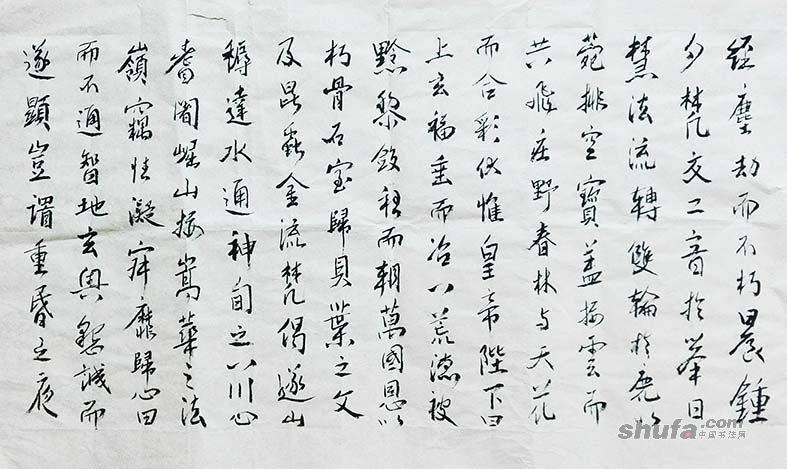 經塵劫而不朽晨鍾
夕梵交二音於峯日
慧法流轉雙輪於鹿以
菀排空寶蓋接雲而
共飛庄野春林与天花
而合彩伏惟皇帝陛下曰
上玄福垂而治八荒德被
黔黎斂衽而朝萬國恩以
朽骨石室歸貝葉之文
及昆蟲金流梵偈遂山
耨達水通神甸之八川心
耆闍崛山接嵩華之法
嶺竊性凝寂靡歸心田
而不通智地玄奧懇誠而
遂顯豈謂重昏之夜
shufa.com
中国书法网